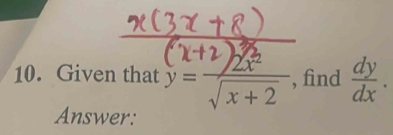 x(3x+8)
(x+2)^{3/2}
10. Given that y = 2x²/√(x+2), find dy/dx.
Answer: